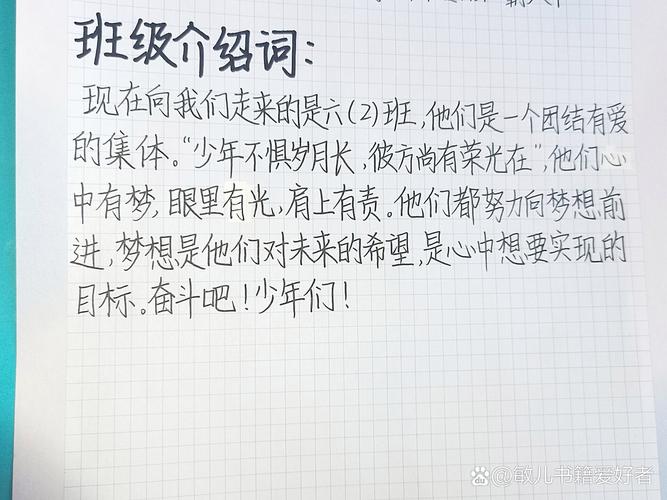 班级介绍词：
现在向我们走来的是六(2)班,他们是一个团结有爱
的集体。“少年不惧岁月长,彼方尚有荣光在”,他们心
中有梦,眼里有光,肩上有责。他们都努力向梦想前
进,梦想是他们对未来的希望,是心中想要实现的
目标。奋斗吧!少年们!
@敏儿书籍爱好者